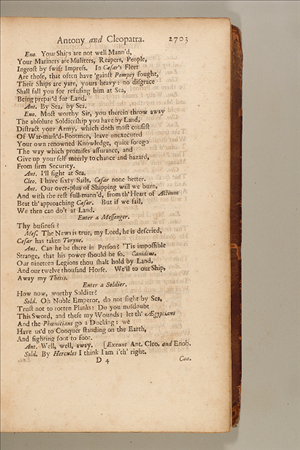 Antony and Cleopatra. 2703
Eno. Your Ships are not well Mann'd,
Your Mariners are Muliters, Reapers, People,
Ingrost by swift Impress. In Cæsar's Fleet
Are those, that often have 'gainst Pompey fought,
Their Ships are yare, yours heavy: no disgrace
Shall fall you for refusing him at Sea,
Being prepar'd for Land.
Ant. By Sea, by Sea.
Eno. Most worthy Sir, you therein throw away
The absolute Soldiership you have by Land,
Distract your Army, which doth most consist
Of War-mark'd-Footmen, leave unexecuted
Your own renowned Knowledge, quite forego
The way which promises assurance, and
Give up your self meerly to chance and hazard,
From firm Security.
Ant. I'll fight at Sea.
Cleo. I have sixty Sails, Cæsar none better.
Ant. Our over-plus of Shipping will we burn,
And with the rest full-mann'd, from th' Heart of Actium
Beat th' approaching Cæsar. But if we fail,
We then can do't at Land.
Enter a Messenger.
Thy business?
Mes. The News is true, my Lord, he is descried,
Cæsar has taken Toryne.
Ant. Can he be there in Person? 'Tis impossible
Strange, that his power should be so. Canidius,
Our nineteen Legions thou shalt hold by Land,
And our twelve thousand Horse. We'll to our Ship,
Away my Thetis.
Enter a Soldier.
How now, worthy Soldier?
Sold. Oh Noble Emperor, do not fight by Sea,
Trust not to rotten Planks: Do you misdoubt
This Sword, and these my Wounds? let th' Ægyptians
And the Phœnicians go a Ducking: we
Have us'd to Conquer standing on the Earth,
And fighting foot to foot.
Ant. Well, well, away. [Exeunt Ant. Cleo. and Enob.
Sold. By Hercules I think I am i'th' right.
D 4 Can.